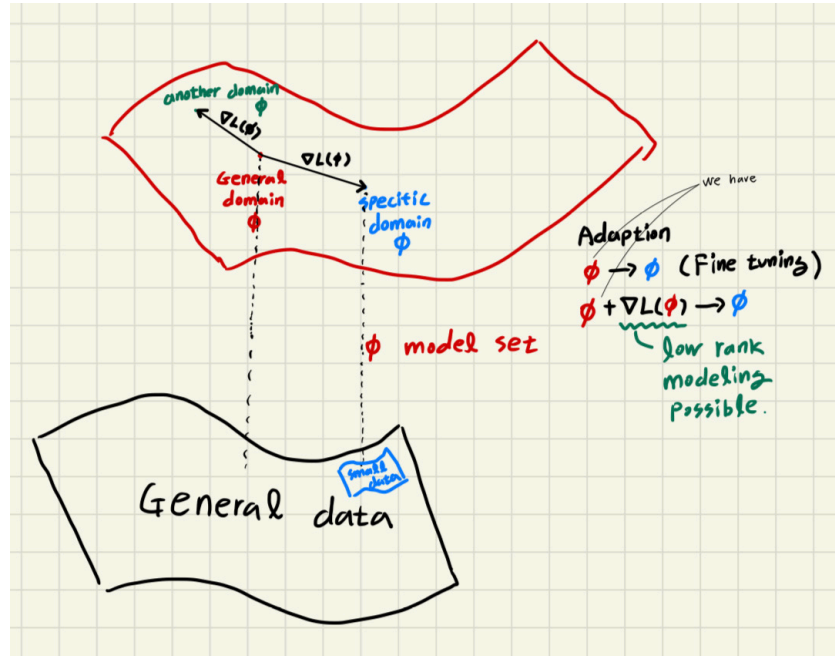 another domain
ϕ
∇L(ϕ)
∇L(ϕ)
General
domain
ϕ
specific
domain
ϕ
we have
Adaption
ϕ → ϕ (Fine tuning)
ϕ + ∇L(ϕ) → ϕ
low rank
modeling
possible.
ϕ model set
small
data
General data